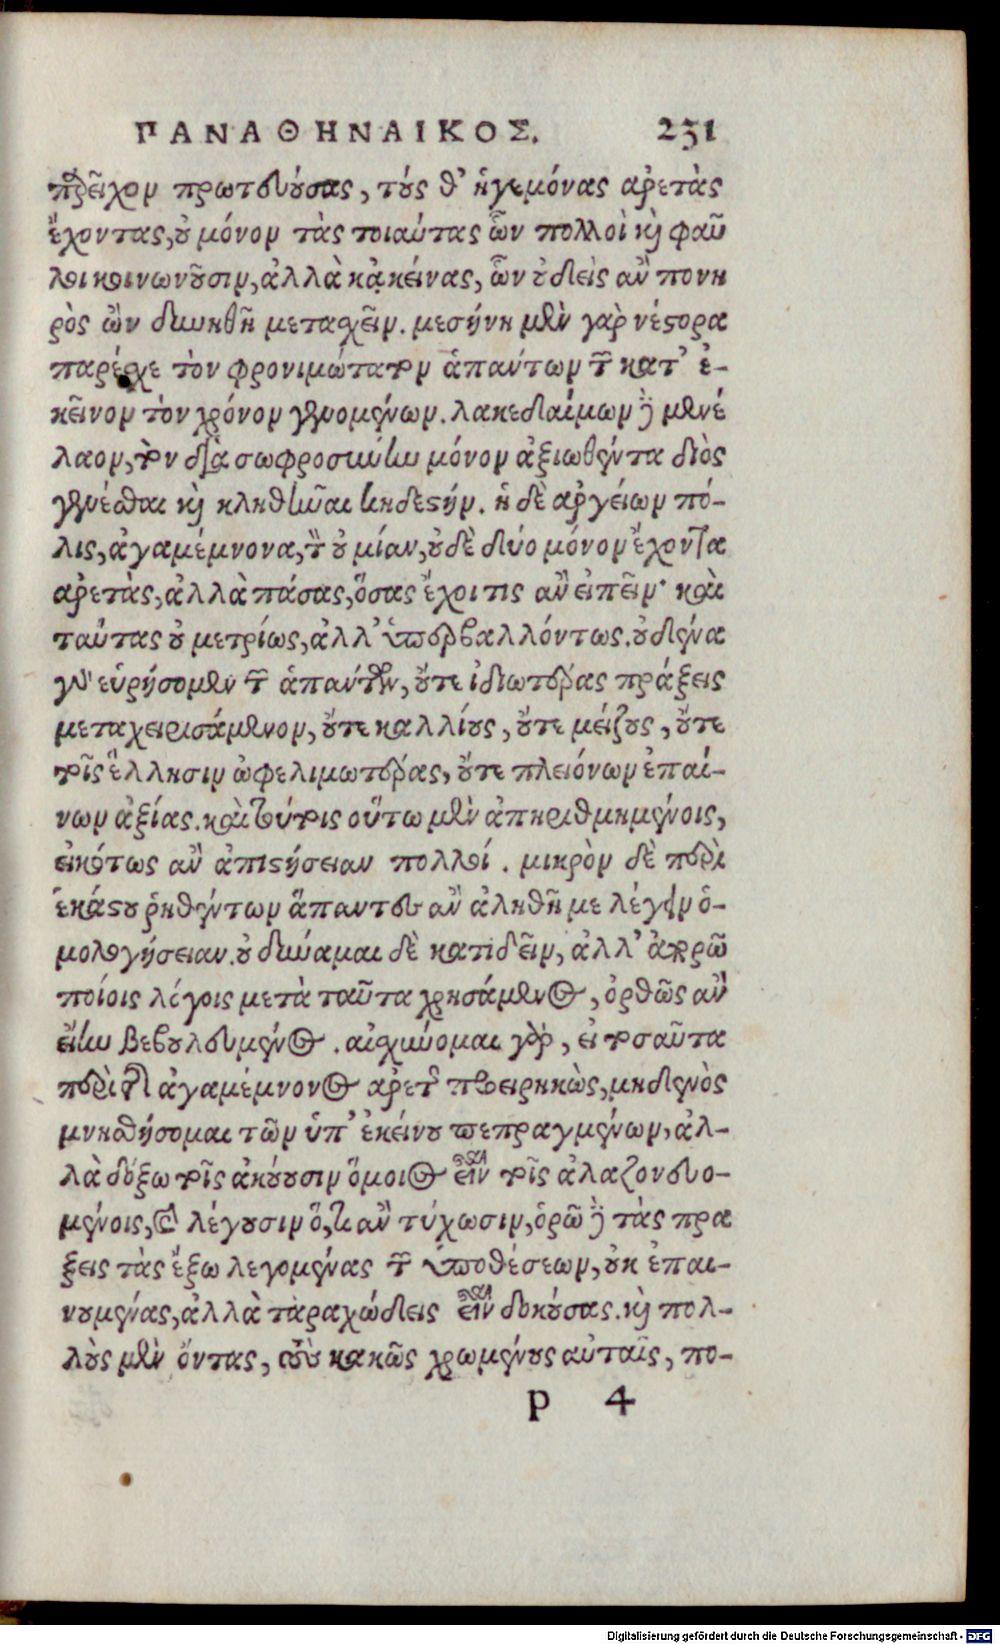 ΠΑΝΑΘΗΝΑΙΚΟΣ. 231
παρεῖχον πρωτευούσας, τούς θ' ἡγεμόνας ἀρετὰς
ἔχοντας, οὐ μόνον τὰς τοιαύτας ὧν πολλοὶ καὶ φαῦ
λοι κοινωνοῦσιν, ἀλλὰ κἀκείνας, ὧν οὐδεὶς ἂν πονη
ρὸς ὢν δυνηθῆ μετασχεῖν. μεσήνη μὲν γὰρ νέστορα
παρέσχε τὸν φρονιμώτατον ἁπάντων τῶν κατ' ἐ-
κεῖνον τὸν χρόνον γενομένων. λακεδαίμων δὲ μενέ
λαον, τὸν διὰ σωφροσύνην μόνον ἀξιωθέντα διὸς
γενέσθαι καὶ κληθῆναι κηδεστήν. ἡ δὲ ἀργείων πό-
λις, ἀγαμέμνονα, τὸν οὐ μίαν, οὐδὲ δύο μόνον ἔχοντα
ἀρετὰς, ἀλλὰ πάσας, ὅσας ἔχοι τις ἂν εἰπεῖν· καὶ
ταύτας οὐ μετρίως, ἀλλ' ὑπερβαλλόντως. οὐδένα
γὰρ εὑρήσομεν τῶν ἁπάντων, οὔτε ἰδιωτέρας πράξεις
μεταχειρισάμενον, οὔτε καλλίους, οὔτε μείζους, οὔτε
τοῖς ἕλλησιν ὠφελιμωτέρας, οὔτε πλειόνων ἐπαί-
νων ἀξίας. καὶ τούτοις οὕτω μὲν ἀπηριθμημένοις,
εἰκότως ἂν ἀπιστήσειαν πολλοί. μικρὸν δὲ περὶ
ἑκάστου ῥηθέντων ἅπαντες ἂν ἀληθῆ με λέγειν ὁ-
μολογήσειαν. οὐ δύναμαι δὲ κατιδεῖν, ἀλλ' ἀπορῶ
ποίοις λόγοις μετὰ ταῦτα χρησάμενος, ὀρθῶς ἂν
εἴην βεβουλευμένος. αἰσχύνομαι γὰρ, εἰ τοσαῦτα
περὶ τῆς ἀγαμέμνονος ἀρετῆς προειρηκὼς, μηδενὸς
μνησθήσομαι τῶν ὑπ' ἐκείνου πεπραγμένων, ἀλ-
λὰ δόξω τοῖς ἀκούουσιν ὅμοιος εἶναι τοῖς ἀλαζονευο-
μένοις, καὶ λέγουσιν ὅ,τι ἂν τύχωσιν, ὁρῶ δὲ τὰς πρα
ξεις τὰς ἔξω λεγομένας τῶν ὑποθέσεων, οὐκ ἐπαι-
νουμένας, ἀλλὰ ταραχώδεις εἶναι δοκούσας. καὶ πολ-
λοὺς μὲν ὄντας, τοὺς κακῶς χρωμένους αὐταῖς, πο-
ρ 4
Digitalisierung gefördert durch die Deutsche Forschungsgemeinschaft - DFG